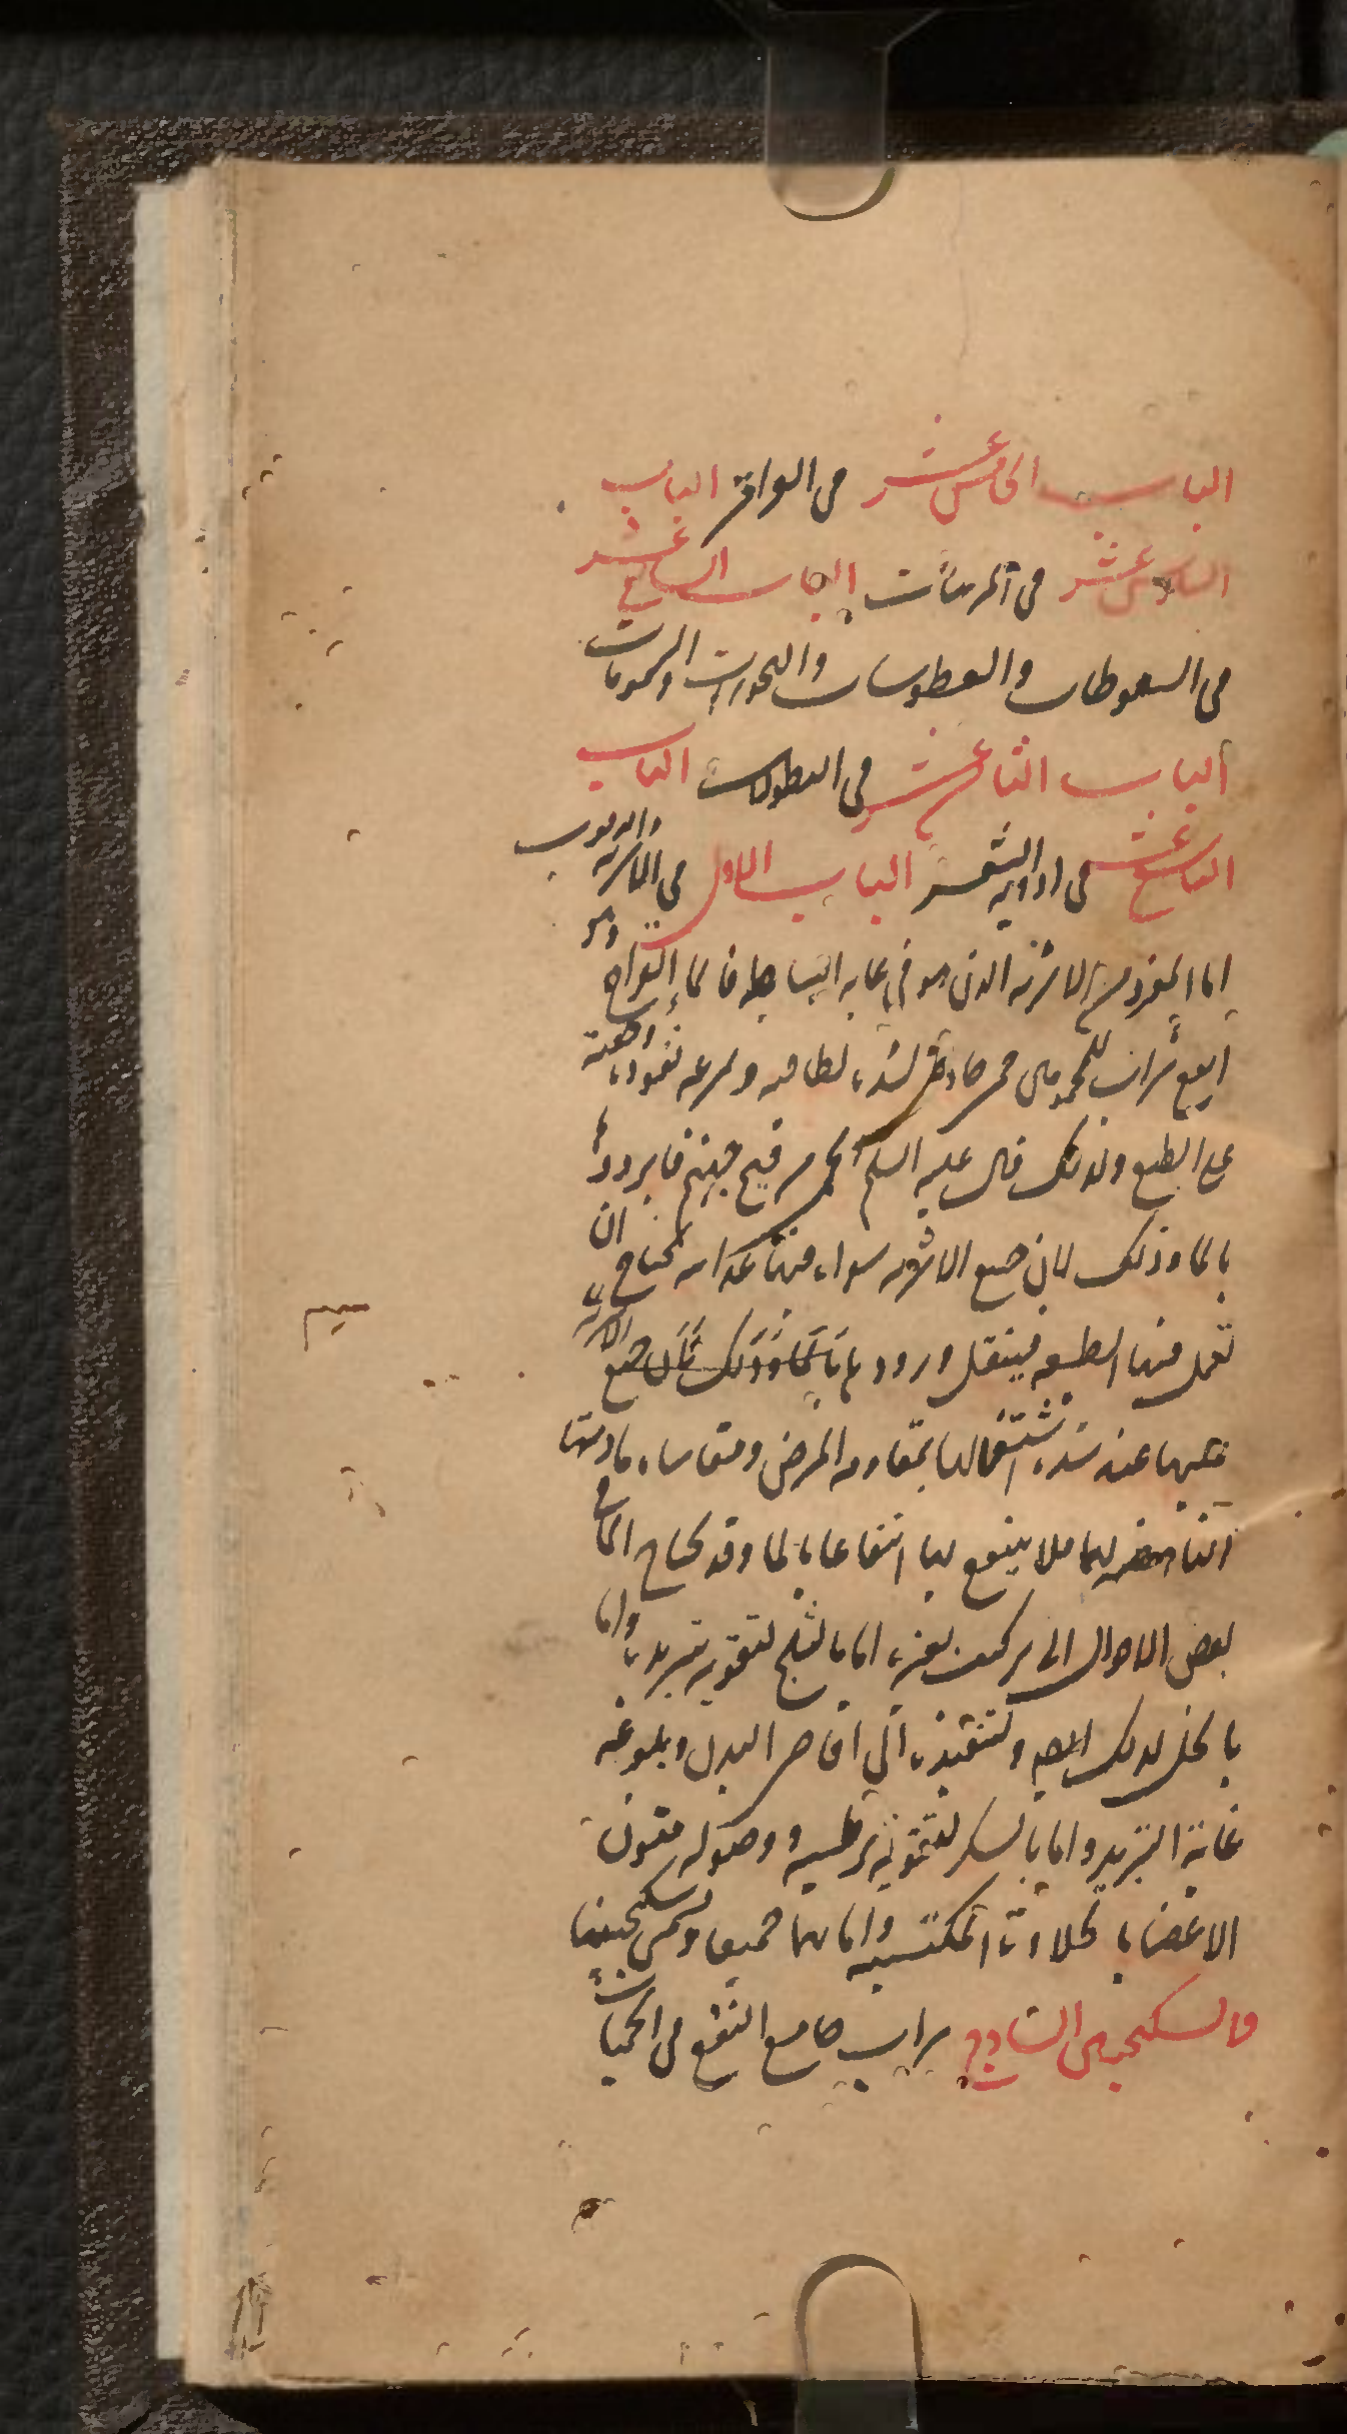 الباب الخامس عشر في اللوازق الباب
السادس عشر في المرهمات الباب السابع عشر
في السعوطات والعطوسات والبخورات والشمومات
الباب الثامن عشر في النطولات الباب
التاسع عشر في ادوية الشعر الباب الاول في الاشربة والربوب
اما المفرد من الاشربة الذي هو في غاية البساطة فالماء القراح وهو
انفع شراب للمحمومين حمى صادقة لشدة لطافته وسرعة نفوذه
على الطبع ولذلك قال عليه السلم الحمى من فيح جهنم فابردوها
بالماء وذلك لان جميع الاشربة سواه فيها غذائية تحتاج ان
تعمل فيها الطبيعة فيثقل ورودها بالماء وذلك لان جميع الاشربة
عليها عند شدة اشتغالها بمقاومة المرض ومقاساة مادتها
فلا ينتفع بها انتفاعها بالماء وقد يحتاج الماء في
بعض الاحوال الى تركيب بغيره اما بالثلج لتقوية تبريده واما
بالخل لذلك ايضا ولتنفيذه الى اقاصي البدن وبلوغه
غاية التبريد واما بالسكر لتقوية ترطيبه ووصوله متون
الاعضا بالحلاوة المكتسبة واما بهما جميعا ويسمى سكنجبينا
والسكنجبين الساذج شراب جامع النفع في الحميات